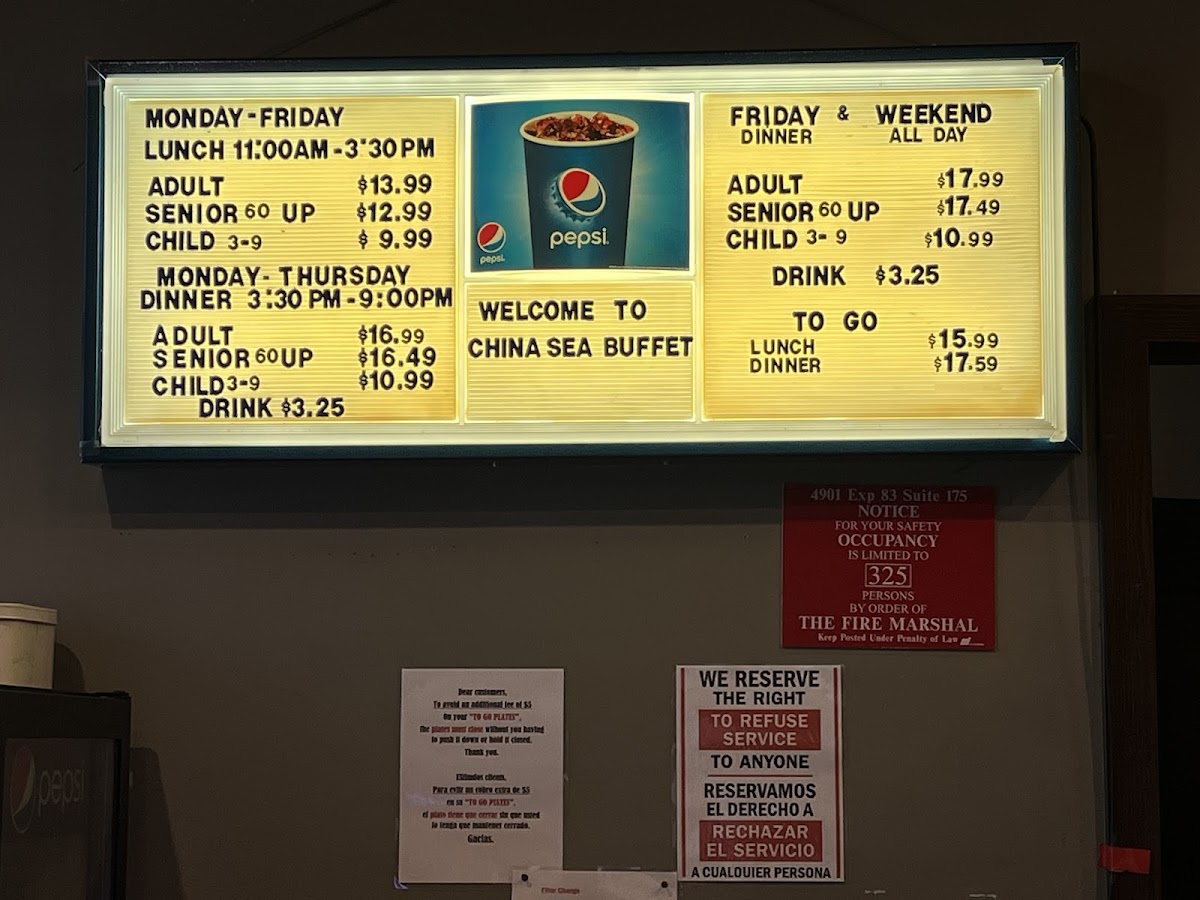 MONDAY-FRIDAY
LUNCH 11:00AM-3:30PM
ADULT $13.99
SENIOR 60 UP $12.99
CHILD 3-9 $ 9.99
MONDAY-THURSDAY
DINNER 3:30 PM-9:00PM
ADULT $16.99
SENIOR 60 UP $16.49
CHILD 3-9 $10.99
DRINK $3.25
pepsi.
pepsi.
WELCOME TO
CHINA SEA BUFFET
FRIDAY & WEEKEND
DINNER ALL DAY
ADULT $17.99
SENIOR 60 UP $17.49
CHILD 3-9 $10.99
DRINK $3.25
TO GO
LUNCH $15.99
DINNER $17.59
4901 Exp 83 Suite 175
NOTICE
FOR YOUR SAFETY
OCCUPANCY
IS LIMITED TO
325
PERSONS
BY ORDER OF
THE FIRE MARSHAL
Keep Posted Under Penalty of Law
Dear customers,
To avoid an additional fee of $5
On your "TO GO PLATES",
the plates must close without you having
to push it down or hold it closed.
Thank you.
EStimdos clients,
Para evitr un cobro extra de $5
en su "TO GO PLATES",
el plato tiene que cerrar sin que usted
lo tenga que mantener cerrado.
Gacias.
WE RESERVE
THE RIGHT
TO REFUSE
SERVICE
TO ANYONE
RESERVAMOS
EL DERECHO A
RECHAZAR
EL SERVICIO
A CUALQUIER PERSONA
Filter Change
pepsi